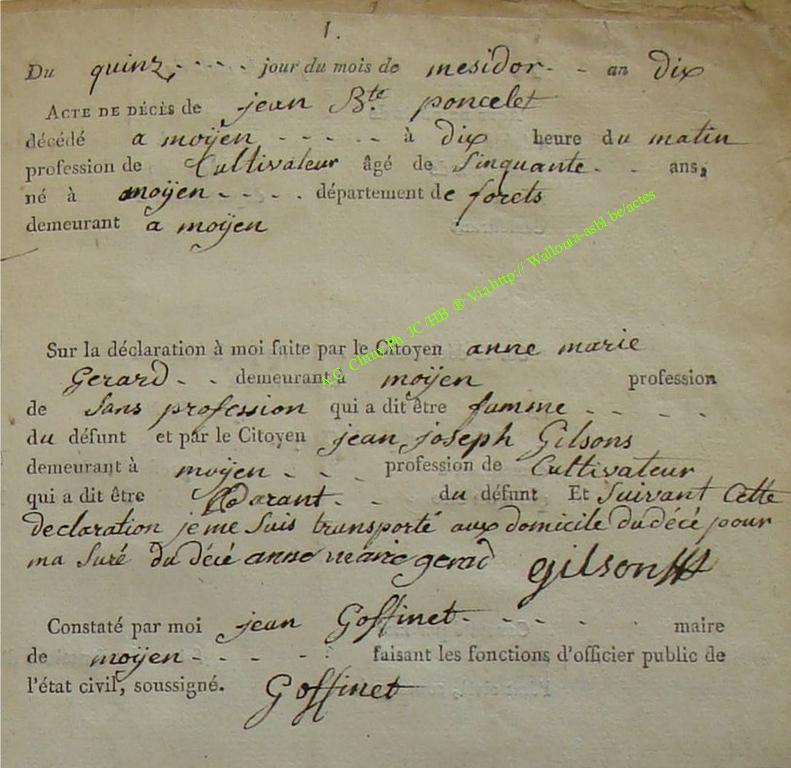 1.
Du quinz - - - - jour du mois de mesidor - - an dix
ACTE DE DÉCÈS de jean B.te poncelet
décédé a moÿen - - - - - à dix heure du matin
profession de Cultivateur âgé de Sinquante - - ans,
né à moÿen - - - - département de forets
demeurant a moÿen
Sur la déclaration à moi faite par le Citoyen anne marie
Gerard - - demeurant à moÿen profession
de Sans profession qui a dit être famme - - - -
du défunt et par le Citoyen jean joseph Gilsons
demeurant à moÿen - - - profession de Cultivateur
qui a dit être parant - - du défunt Et Suivant Cette
declaration je me Suis transporté aux domicile du décé pour
ma Suré du décé anne marie gerad gilson
Constaté par moi jean Goffinet - - - - - maire
de moÿen - - - - faisant les fonctions d'officier public de
l'état civil, soussigné. Goffinet
JC-HB @ Via http:// Wallonia-asbl.be/actes